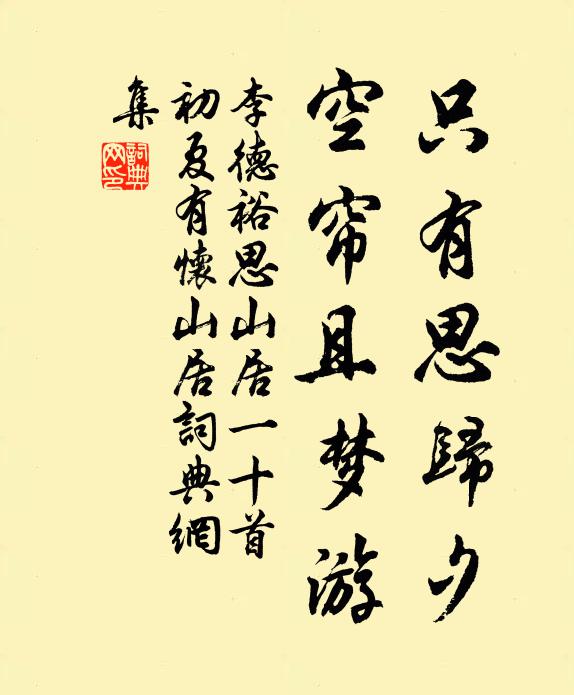 只有思歸夕
空帘且梦游
李德裕思山居一十首
初夏有懷山居詞典網
集
詞典
网印